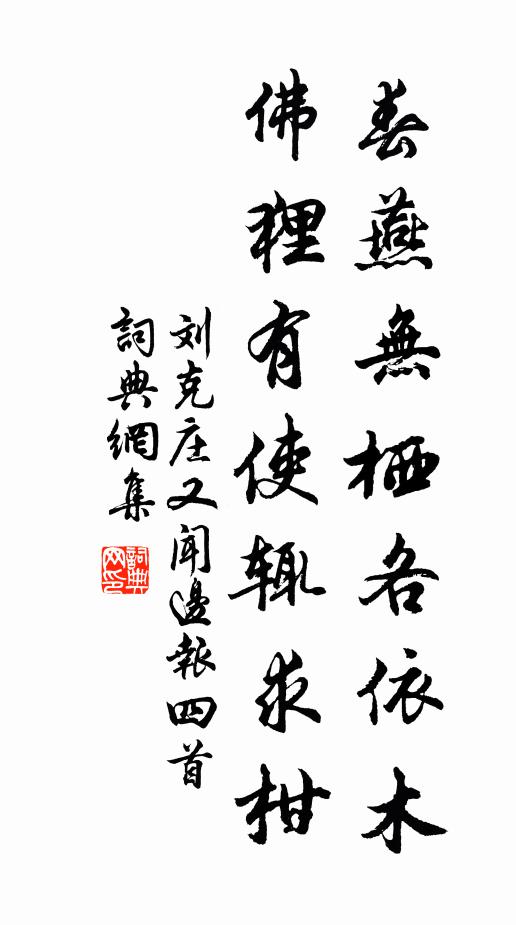 春燕無栖各依木
佛狸有使辄求柑
刘克庄又聞邊報四首
詞典網集
詞典网印